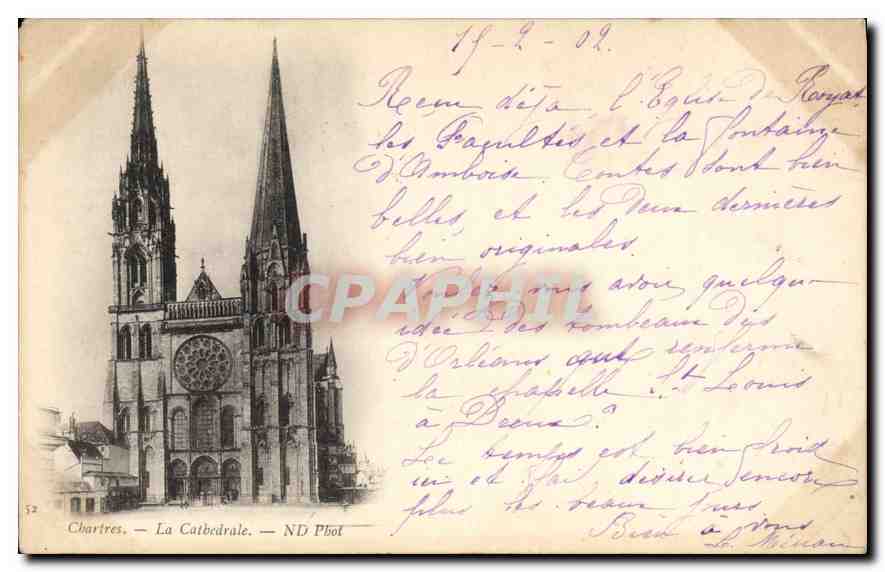 15-2-02.
Reçu déjà l'Eglise de Royat
les Facultés et la fontaine
d'Amboise. Toutes sont bien
belles, et les deux dernières
bien originales.
vous avoir quelqu'
idée des tombeaux des
d'Orléans que renferme
la chapelle St Louis
à Dreux?
Le temps est bien froid
ici et fait désirer encore
plus les beaux jours
Bien à vous
CPAPHIL
52
Chartres. — La Cathédrale. — ND Phot